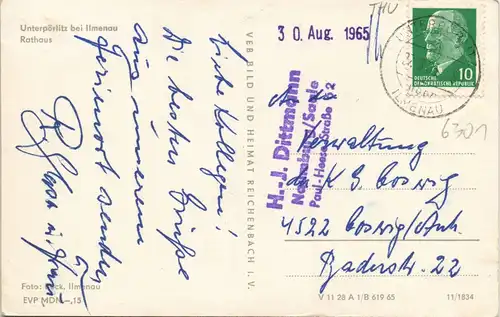 Unterpörlitz bei Ilmenau
Rathaus
30. Aug. 1965
THÜ
ILMENAU
DEUTSCHE
DEMOKRATISCHE REPUBLIK
10
6301
Liebe Kollegen!
Die besten Grüße
aus unserem
Ferienort senden
VEB BILD UND HEIMAT REICHENBACH I. V.
H.-J. Dittmann
Naumburg/Saale
Paul-Heese-Straße 12
An
Verwaltung
der K G Coswig
4522 Coswig/Anh.
Baderstr. 22
Foto: Beck, Ilmenau
EVP MDN -,15
V 11 28 A 1/B 619 65
11/1834